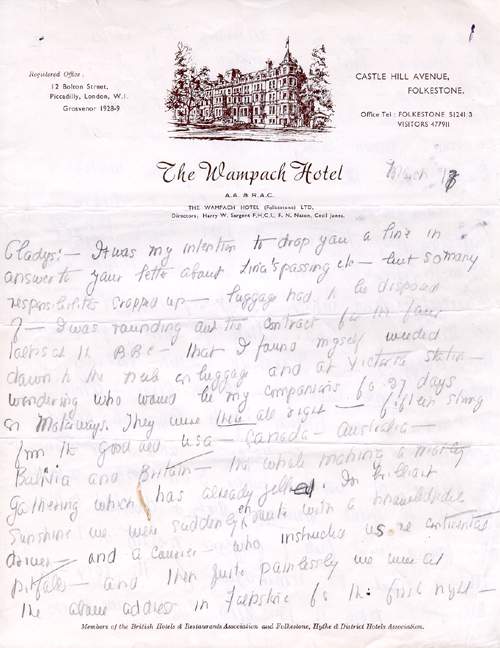 Registered Office:
12 Bolton Street,
Piccadilly, London, W.1.
Grosvenor 1928-9
CASTLE HILL AVENUE,
FOLKESTONE.
Office Tel: FOLKESTONE 51241-3
VISITORS 477911
The Wampach Hotel
March 17
A.A. & R.A.C.
THE WAMPACH HOTEL (Folkestone) LTD.
Directors, Harry W. Sargent F.H.C.I., F. N. Nixon, Cecil Jones.
Gladys:- It was my intention to drop you a line in
answer to your letter about passing etc - but so many
responsibilities cropped up - luggage had to be disposed
of - I was rounding out the contract for the four
at the BBC - that I found myself weeded
down to the nub on luggage and at Victoria station -
wondering who would be my companions for 27 days
on Motorways. They were there all right - fifteen strong
from the good old USA - Canada - Australia -
and Britain - the whole making a motley
gathering which has already jelled. In brilliant
sunshine we were suddenly en route with a knowledgeable
driver - and a courier - who instructed us re continental
pitfalls - and then quite painlessly we were at
the above address in Folkestone for the first night -
Members of the British Hotels & Restaurants Association and Folkestone, Hythe & District Hotels Association.